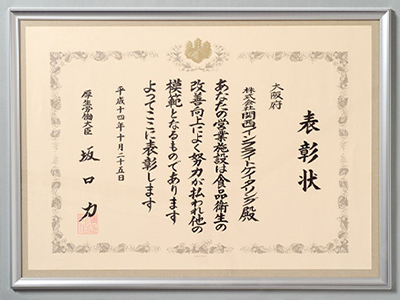 表彰状
大阪府
株式会社関西インフライトケイタリング殿
あなたの営業施設は食品衛生の
改善向上によく努力が払われ他の
模範となるものであります
よってここに表彰します
平成十四年十月二十五日
厚生労働大臣
坂口力